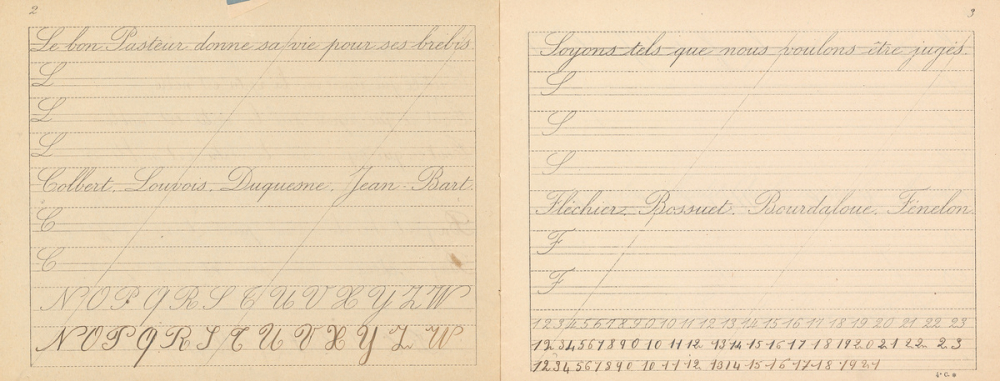 2
Le bon Pasteur donne sa vie pour ses brebis.
L
L
L
Colbert. Louvois. Duquesne. Jean-Bart.
C
C
N O P Q R S T U V X Y Z W
N O P Q R S T U V X Y Z W
3
Soyons tels que nous voulons être jugés.
S
S
S
Fléchier. Bossuet. Bourdaloue. Fénelon.
F
F
1 2 3 4 5 6 7 8 9 0 10 11 12 13 14 15 16 17 18 19 20 21 22 23
1 2 3 4 5 6 7 8 9 0 10 11 12 13 14 15 16 17 18 19 20 21 22 23
1 2 3 4 5 6 7 8 9 0 10 11 12 13 14 15 16 17 18 19 2 1